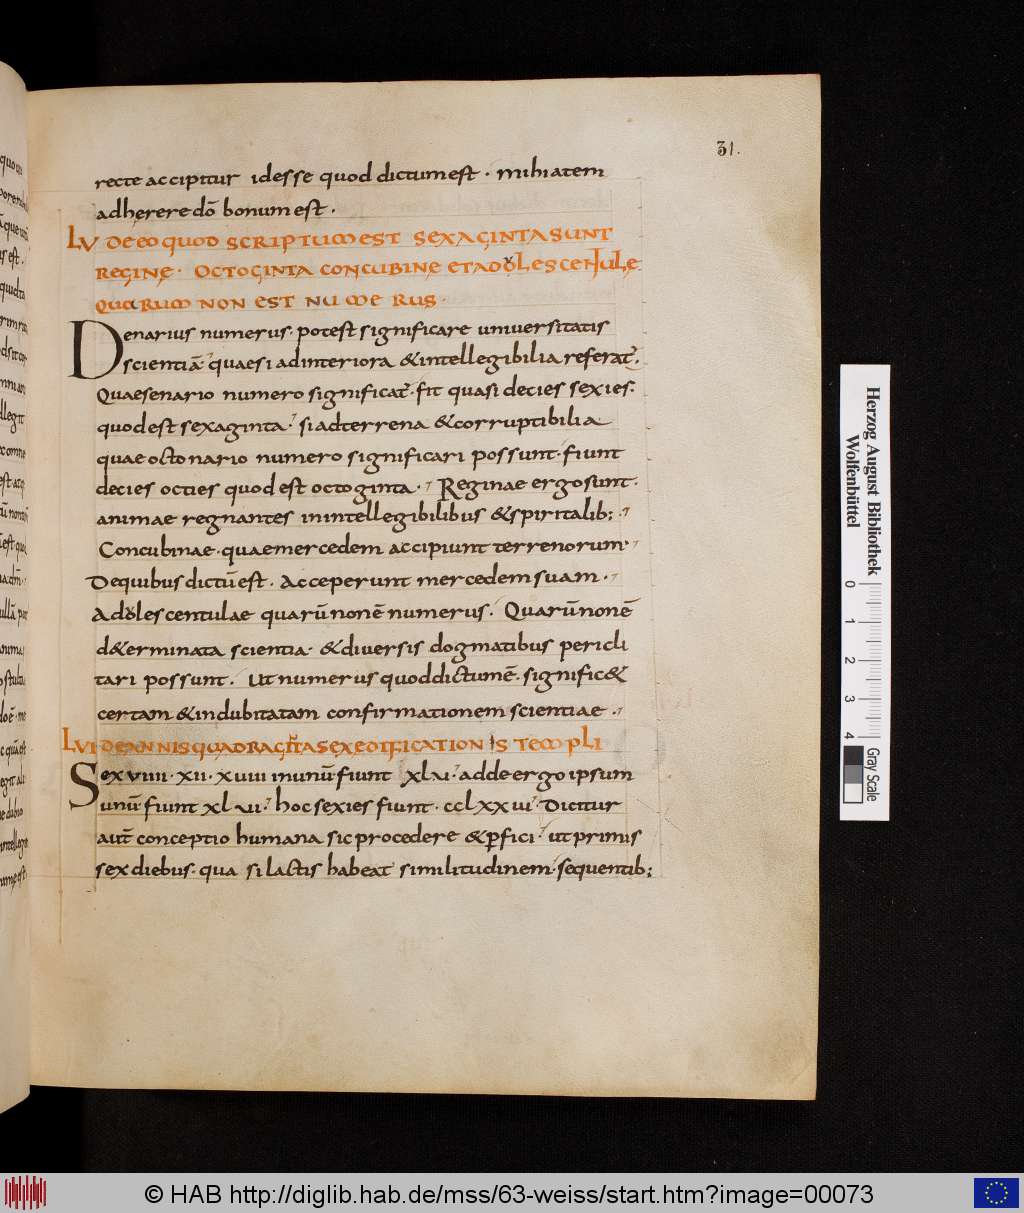 31.
recte accipitur id esse quod dictum est · mihi atem
adherere dō bonum est ·
LV DE EO QUOD SCRIPTUM EST SEXAGINTA SUNT
REGINĘ · OCTOGINTA CONCUBINĘ ET ADOLESCENTULĘ
QUARUM NON EST NUMERUS ·
Denarius numerus · potest significare universitatis
scientiā · quae si ad interiora & intellegibilia referat̄ ·
Quae senario numero significat̄ · fit quasi decies sexies ·
quod est sexaginta · si ad terrena & corruptibilia
quae octonario numero significari possunt · fiunt
decies octies quod est octoginta · Reginae ergo sunt ·
animae regnantes in intellegibilibus & spiritalib; ·
Concubinae · quae mercedem accipiunt terrenorum ·
De quibus dictū est · Acceperunt mercedem suam ·
Adolescentulae quarū non ē numerus · Quarū non ē
d&erminata scientia · & diversis dogmatibus pericli
tari possunt · Ut numerus quod dictum ē · signific&
certam & indubitatam confirmationem scientiae ·
LVI DE ANNIS QUADRAGĪTA SEX EDIFICATIONIS TEMPLI
Sex viiii · xii · xviii in unū fiunt xlv · adde ergo ipsum
unū fiunt xlvi · hoc sexies fiunt · cclxxvi · Dicitur
aut̄ conceptio humana sic procedere & p̄fici · ut primis
sex diebus · quasi lactis habeat similitudinem · sequentib;
Herzog August Bibliothek
Wolfenbüttel
0 1 2 3 4
Gray Scale
© HAB http://diglib.hab.de/mss/63-weiss/start.htm?image=00073